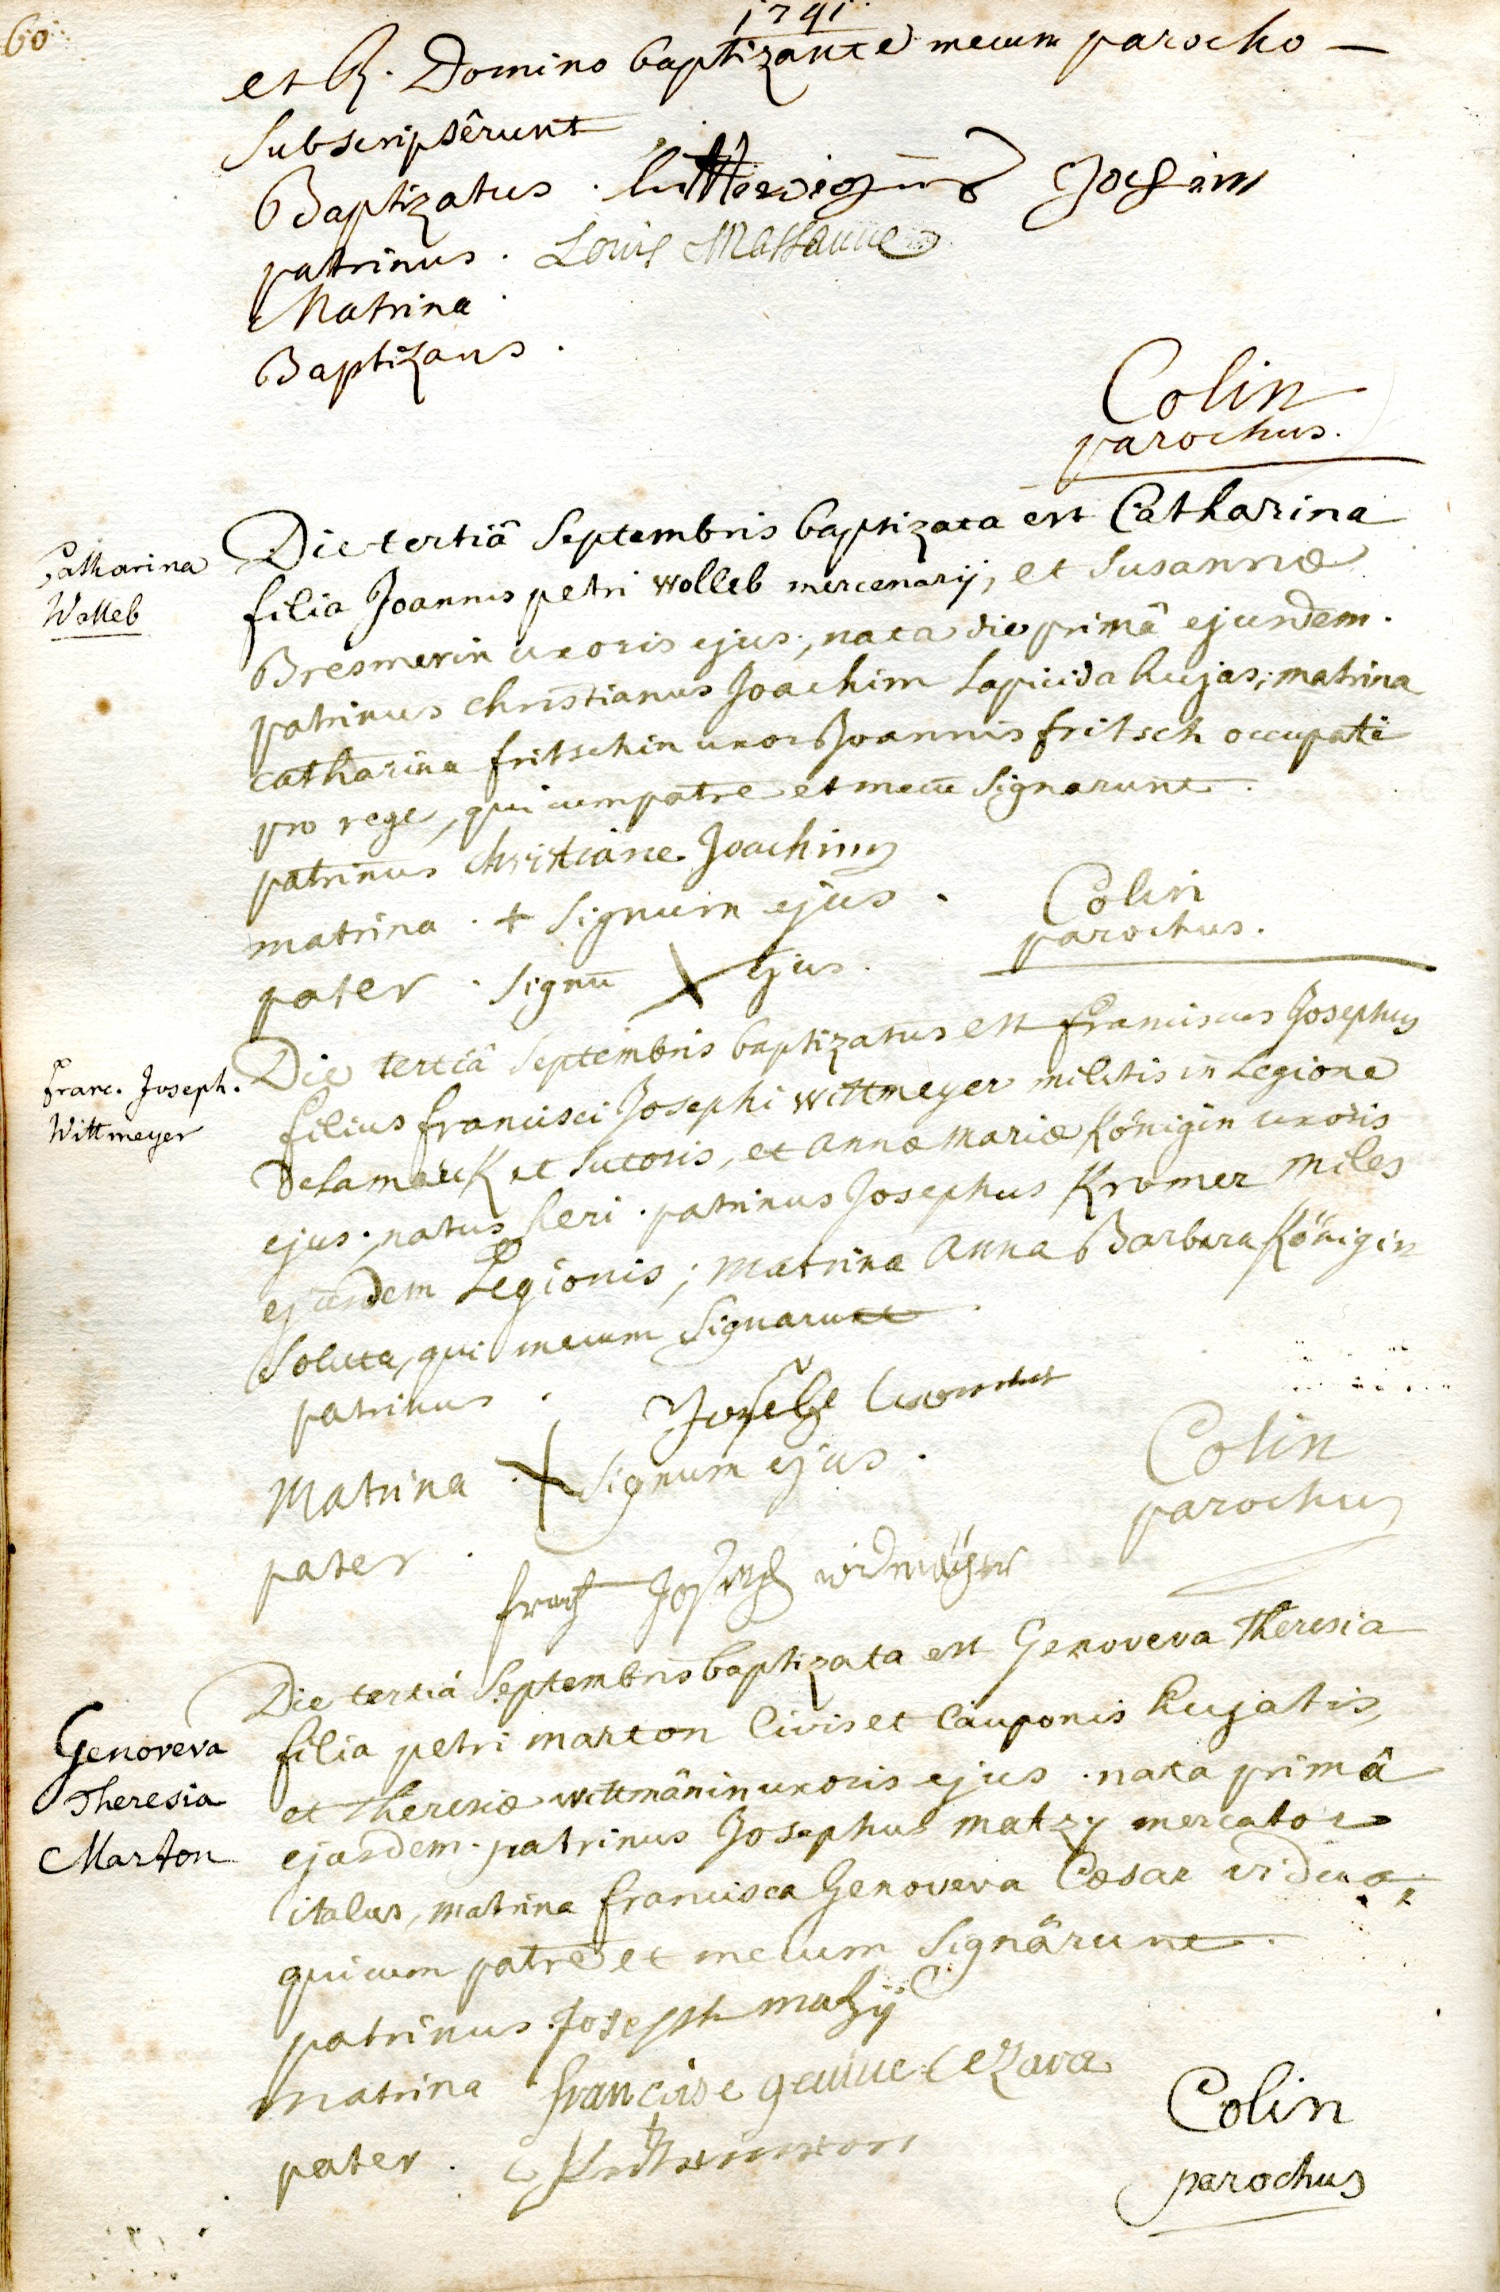 60
1741
et R. Domino baptizante mecum parocho —
Subscripsêrunt
Baptizatus .
patrinus . Louis Massanne
Matrina .
Baptizans .
Colin
parochus.
Catharina
Wolleb
Die tertiâ Septembris baptizata est Catharina
filia Joannis petri wolleb mercenarij, et Susannæ
Bresmerin uxoris ejus, nata die primâ ejusdem.
patrinus christianus Joachim Lapicida hujas; matrina
catharina fritschin uxor Joannis fritsch occupati
pro rege, qui cum patre et mecū Signarunt.
patrinus christiane Joachim
matrina . + Signum ejus .
Colin
parochus.
pater . Signū X ejus .
Franc. Joseph.
Wittmeyer
Die tertiâ Septembris baptizatus est franciscus Josephus
filius francisci Josephi wittmeyer militis in Legione
Delamarck et Sutoris, et annæ mariæ Königin uxoris
ejus, natus heri . patrinus Josephus Kromer miles
ejusdem Legionis; matrina anna Barbara Königin
Soluta, qui mecum Signarunt .
patrinus .
Matrina . X Signum ejus .
Colin
parochus
pater . frantz Joseph widmayer
Genoveva
Theresia
Marton
Die tertiá Septembris baptizata est Genoveva Theresia
filia petri marton Civis et Cauponis hujatis,
et Theresiæ wittmänin uxoris ejus . nata primâ
ejusdem. patrinus Josephus matzy mercator
italus, matrina francisca Genoveva Cæsar vidua,
qui cum patre et mecum Signârunt .
patrinus . Joseph matzÿ
matrina francise
pater .
Colin
parochus